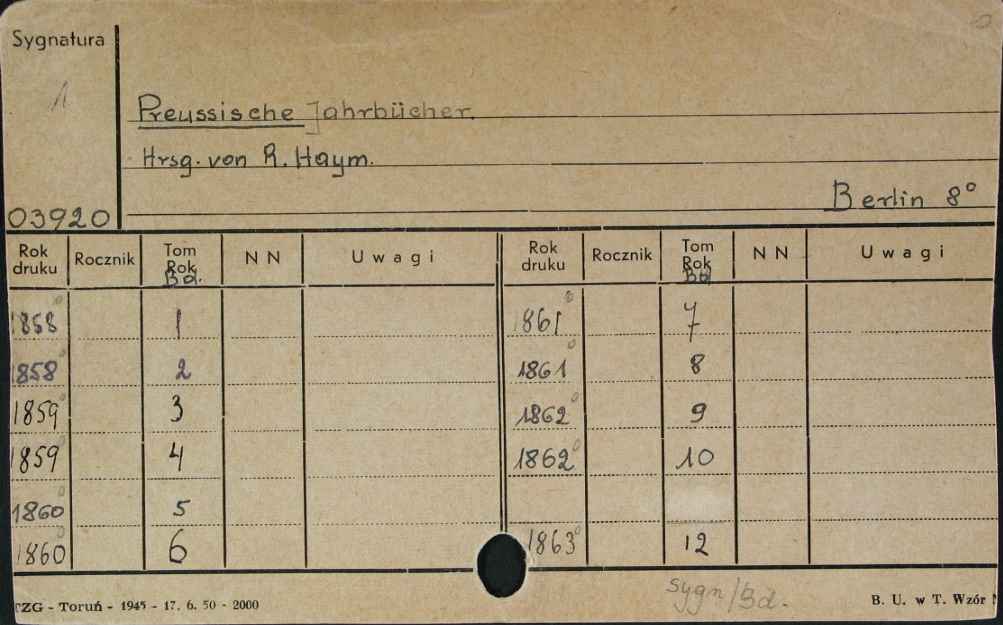 Sygnatura
1
Preussische Jahrbücher.
Hrsg. von R. Haym.
Berlin 8°
03920
Rok druku Rocznik Tom Rok Bd. NN Uwagi Rok druku Rocznik Tom Rok Bd NN Uwagi
1858° 1 1861° 7
1858° 2 1861° 8
1859° 3 1862° 9
1859° 4 1862° 10
1860° 5
1860° 6 1863° 12
sygn/Bd.
TZG - Toruń - 1945 - 17. 6. 50 - 2000 B. U. w T. Wzór